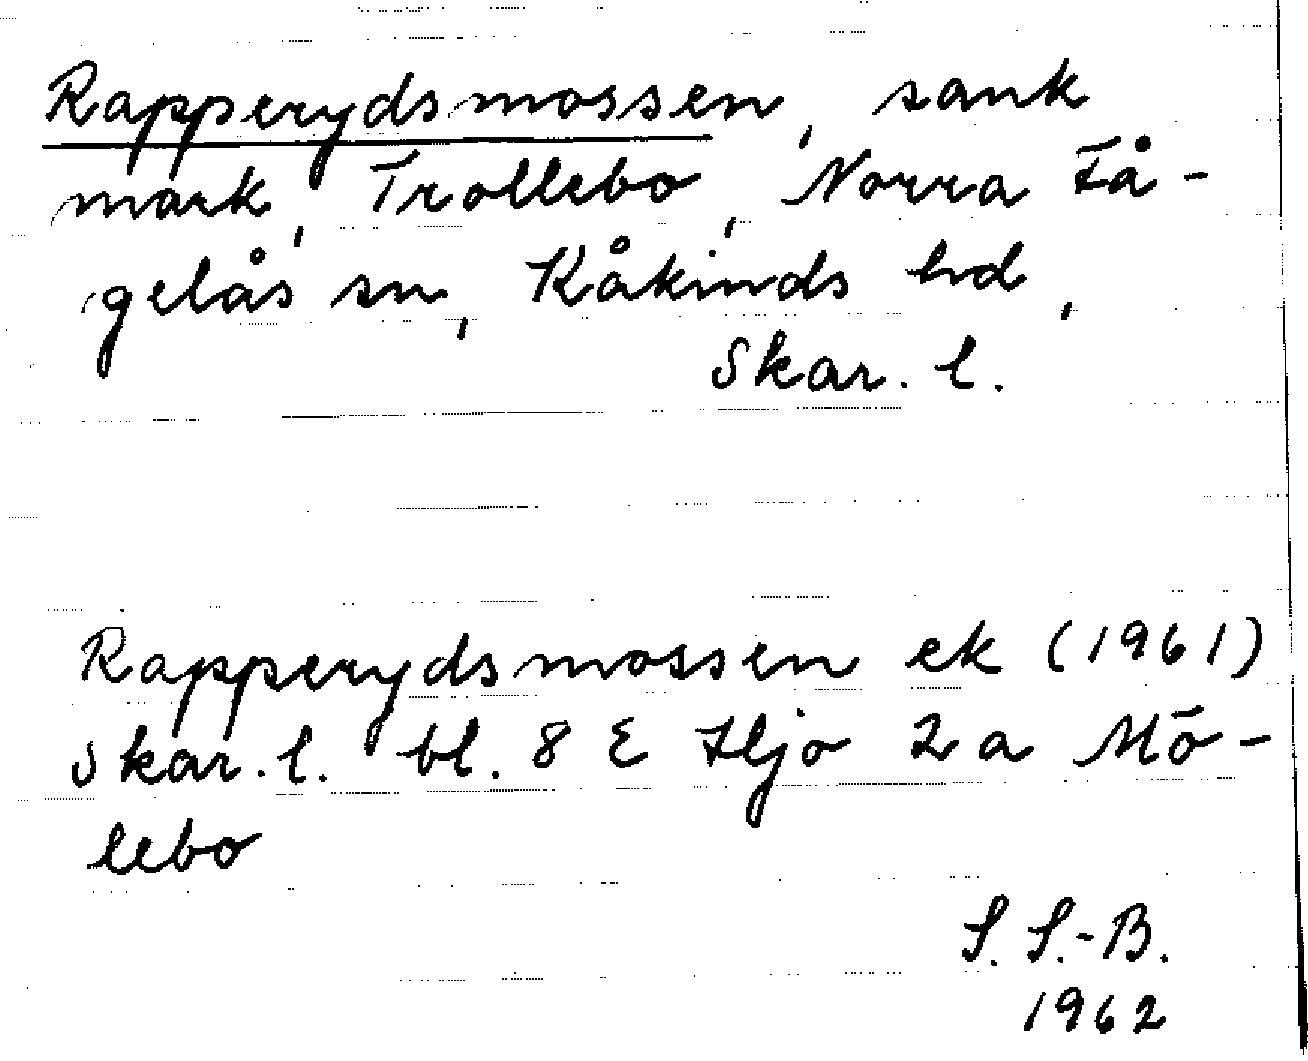 Rapperydsmossen, sank
mark, Trollebo, Norra Få-
gelås sn, Kåkinds hd,
Skar. l.
Rapperydsmossen ek (1961)
Skar. l. bl. 8 E Hjo 2 a Mö-
lebo
S. S.-B.
1962